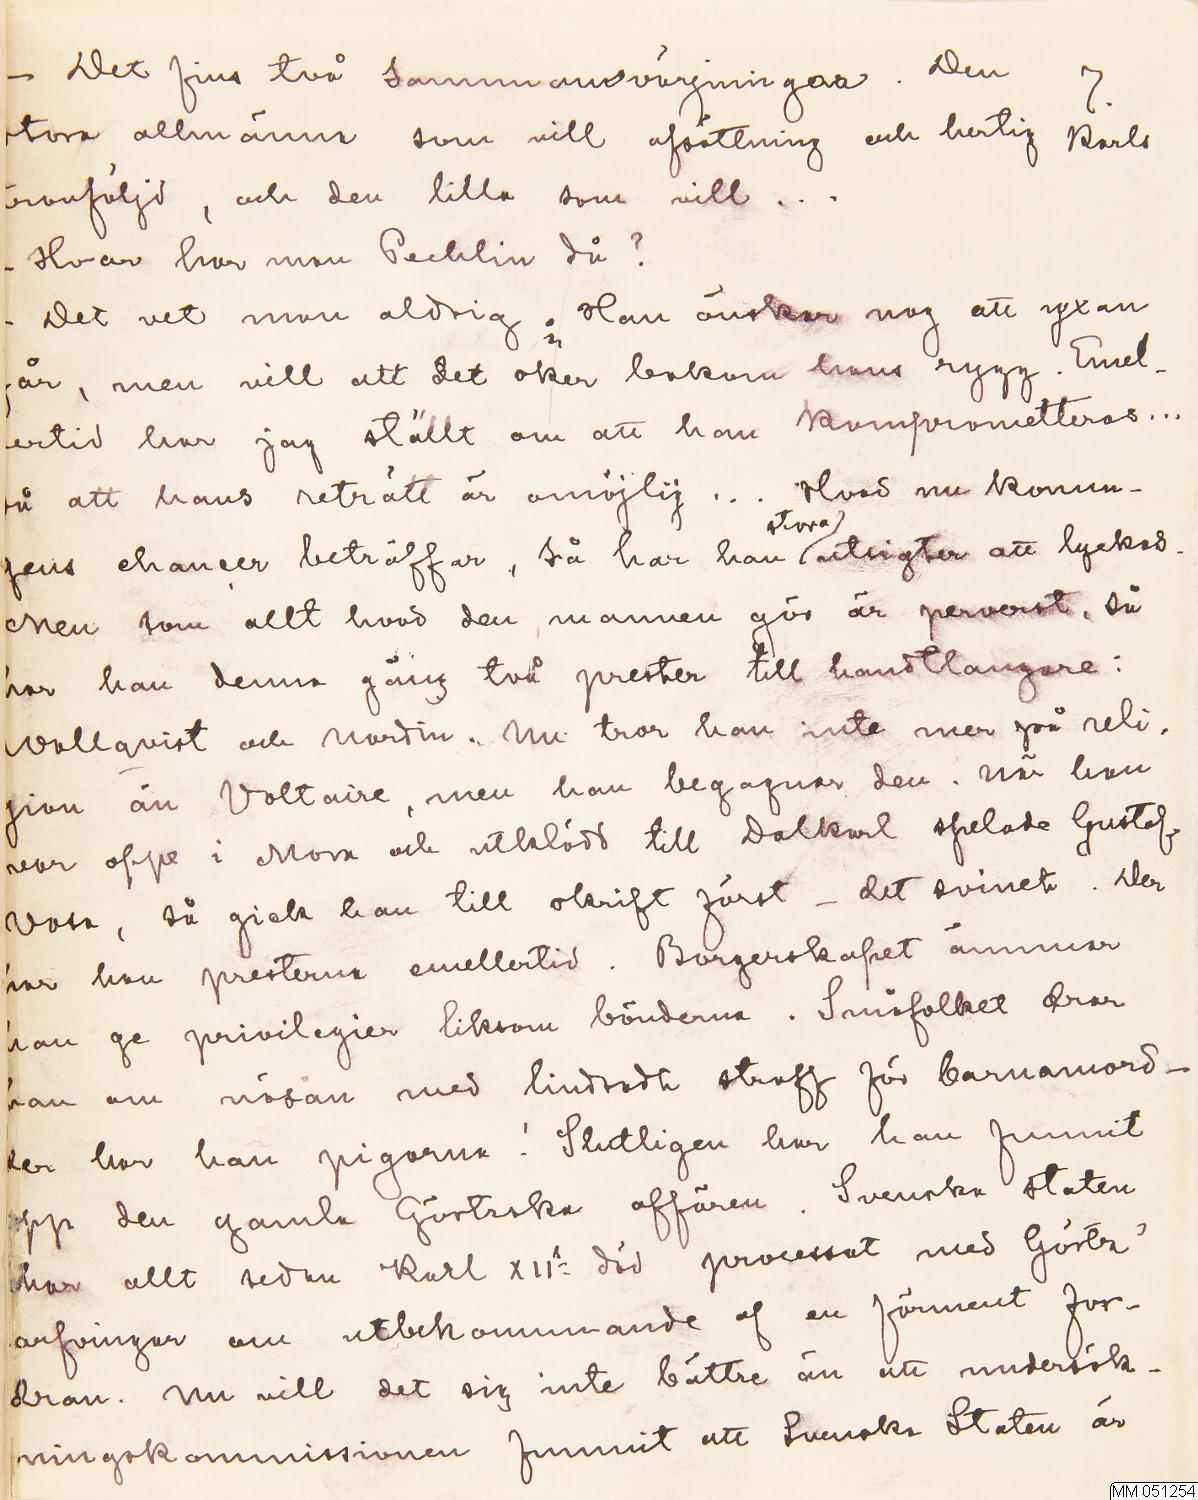 — Det fins två sammansvärjningar. Den 7.
stora allmänna som vill afsättning och hertig Karls
tronföljd, och den lilla som vill ...
- Hvar har man Pechlin då?
- Det vet man aldrig. Han önskar nog att yxan
går, men vill att det sker bakom hans rygg. Emel-
lertid har jag ställt om att han komprometteras...
så att hans reträtt är omöjlig ... Hvad nu konun-
gens chancer beträffar, så har han stora utsigter att lyckas.
Men som allt hvad den mannen gör är perverst, så
har han denna gång två prester till handtlangare:
Wallqvist och Nordin. Nu tror han inte mer på reli-
gion än Voltaire, men han begagnar den. När han
var oppe i Mora och utklädd till Dalkarl spelade Gustaf
Vasa, så gick han till skrift först – det svinet. Der
har han presterna emellertid. Borgerskapet ämnar
han ge privilegier liksom bönderna. Småfolket drar
han om näsan med lindradt straff för barnamord –
der har han pigorna! Slutligen har han funnit
opp den gamla Görtzska affären. Svenska staten
har allt sedan Karl XIIs död processat med Görtz'
arfvingar om utbekommande af en förment for-
dran. Nu vill det sig inte bättre än att undersök-
ningskommissionen funnit att Svenska Staten är
MM 051254